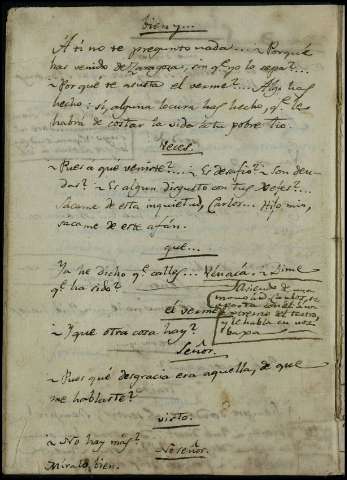 bien y....
A ti no te pregunto nada.... ¿Porqué
has venido de Zaragoza, sin qᵉ yo lo sepa?...
¿Porqué te asusta el verme?.... Algo has
hecho: sí, alguna locura has hecho, qᵉ le
habrá de costar la vida a tu pobre tio.
Veces.
¿Pues a qué veniste?.... ¿Es desafio? ¿Son deu-
das? ¿Es algun disgusto con tus Gefes?....
Sácame de esta inquietud, Carlos... Hijo mio,
sácame de este afán.
que...
Ya he dicho qᵉ calles... Ven acá. ¿Dime
qᵉ ha sido?
Asiendo de una
mano a D. Carlos, se
aparta con él a un
extremo del teatro,
y le habla en voz
baxa
el verme
¿Y que otra cosa hay?
Señor.
¿Pues qué desgracia era aquella, de que
me hablaste?
visto.
¿No hay más?
No señor.
Míralo bien.